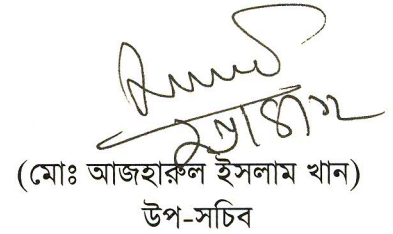 (মোঃ আজহারুল ইসলাম খান)
উপ-সচিব